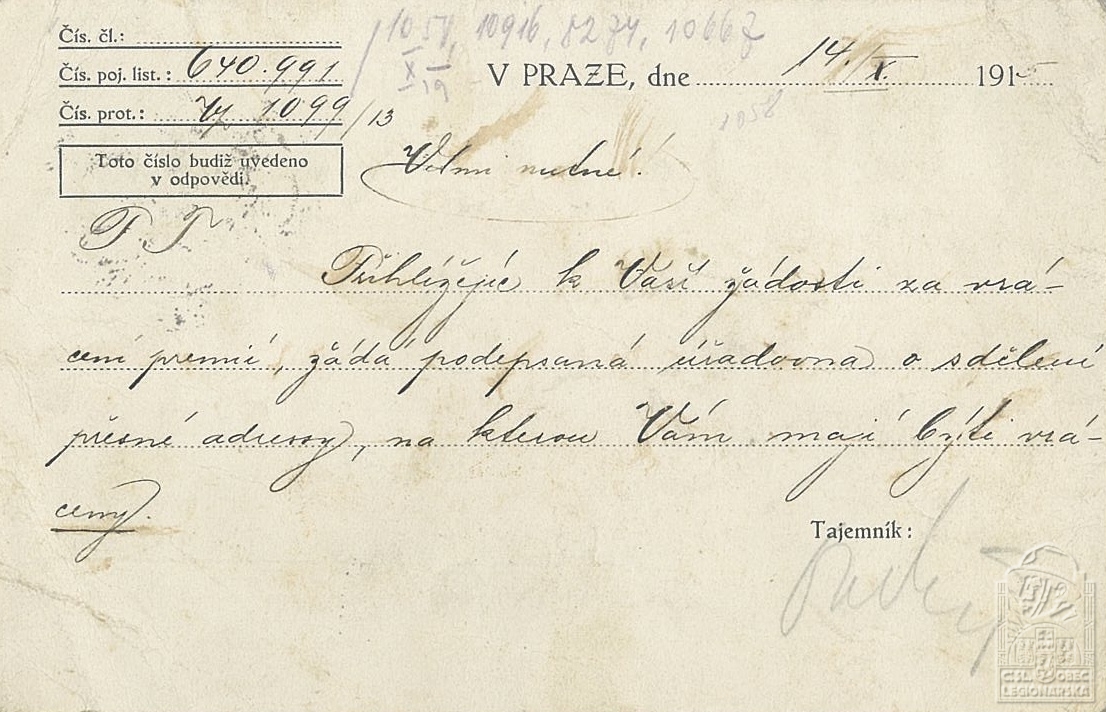 Čís. čl.:
1058, 10916, 8274, 10667
X
19
Čís. poj. list.: 640.991
V PRAZE, dne 14./X. 1915
Čís. prot.: 1099/13
1058
Toto číslo budiž uvedeno
v odpovědi.
Velmi nutné!
P. T.
Přihlížejíc k Vaší žádosti za vrá-
cení premií, žádá podepsaná úřadovna o sdělení
přesné adressy, na kterou Vám mají býti vrá-
ceny.
Tajemník:
ČSL. OBEC
LEGIONÁŘSKÁ